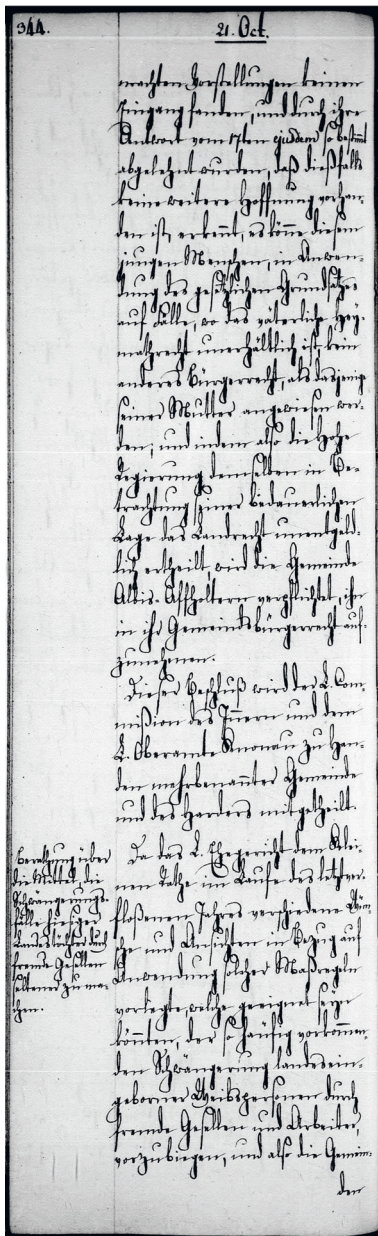 344.
21. Oct.
machten Vorstellungen keinen
Eingang fanden, und durch ihre
Antwort vom 17ten ejusdem so bestimmt
abgelehnt wurden, daß dießfalls
keine weitere Hoffnung vorhan-
den ist, erkennt, es könne diesem
jungen Menschen, in Anwen-
dung des gesetzlichen Grundsatzes
auf Fälle, wo das väterliche Hey-
mathrecht unerhältlich ist, kein
anderes Bürgerrecht, als dasjenige
seiner Mutter angewiesen wer-
den, und indem also die hohe
Regierung demselben in Be-
trachtung seiner bedauerlichen
Lage das Landrecht unentgeld-
lich ertheilt, wird die Gemeinde
Albis-Affholtern verpflichtet, ihn
in ihr Gemeindsbürgerrecht auf-
zunehmen.
Dieser Beschluß wird der L. Com-
mißion des Innern und dem
L. Oberamte Knonau zu Han-
den mehrbenannter Gemeinde
und des Harders mitgetheilt.
Berathung über
die Mittel, die
Schwängerungs-
fälle hiesiger
Landestöchter durch
fremde Gesellen
seltener zu ma-
chen.
Da das L. Ehegericht dem Klei-
nen Rathe im Laufe des letztver-
floßenen Jahres verschiedene Wün-
sche und Ansichten in Bezug auf
Anwendung solcher Maßregeln
vorlegte, welche geeignet seyn
könnten, der so häufig vorkommen-
den Schwängerung landesein-
geborner Weibspersonen durch
fremde Gesellen und Arbeiter,
vorzubiegen, und also die Gemein-
den